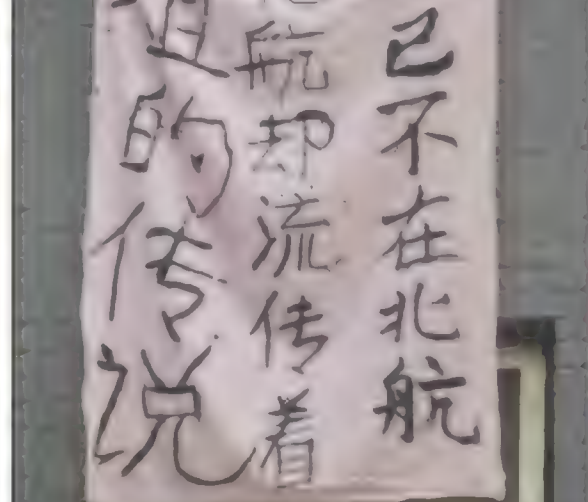 已不在北航
航却流传着
的传说